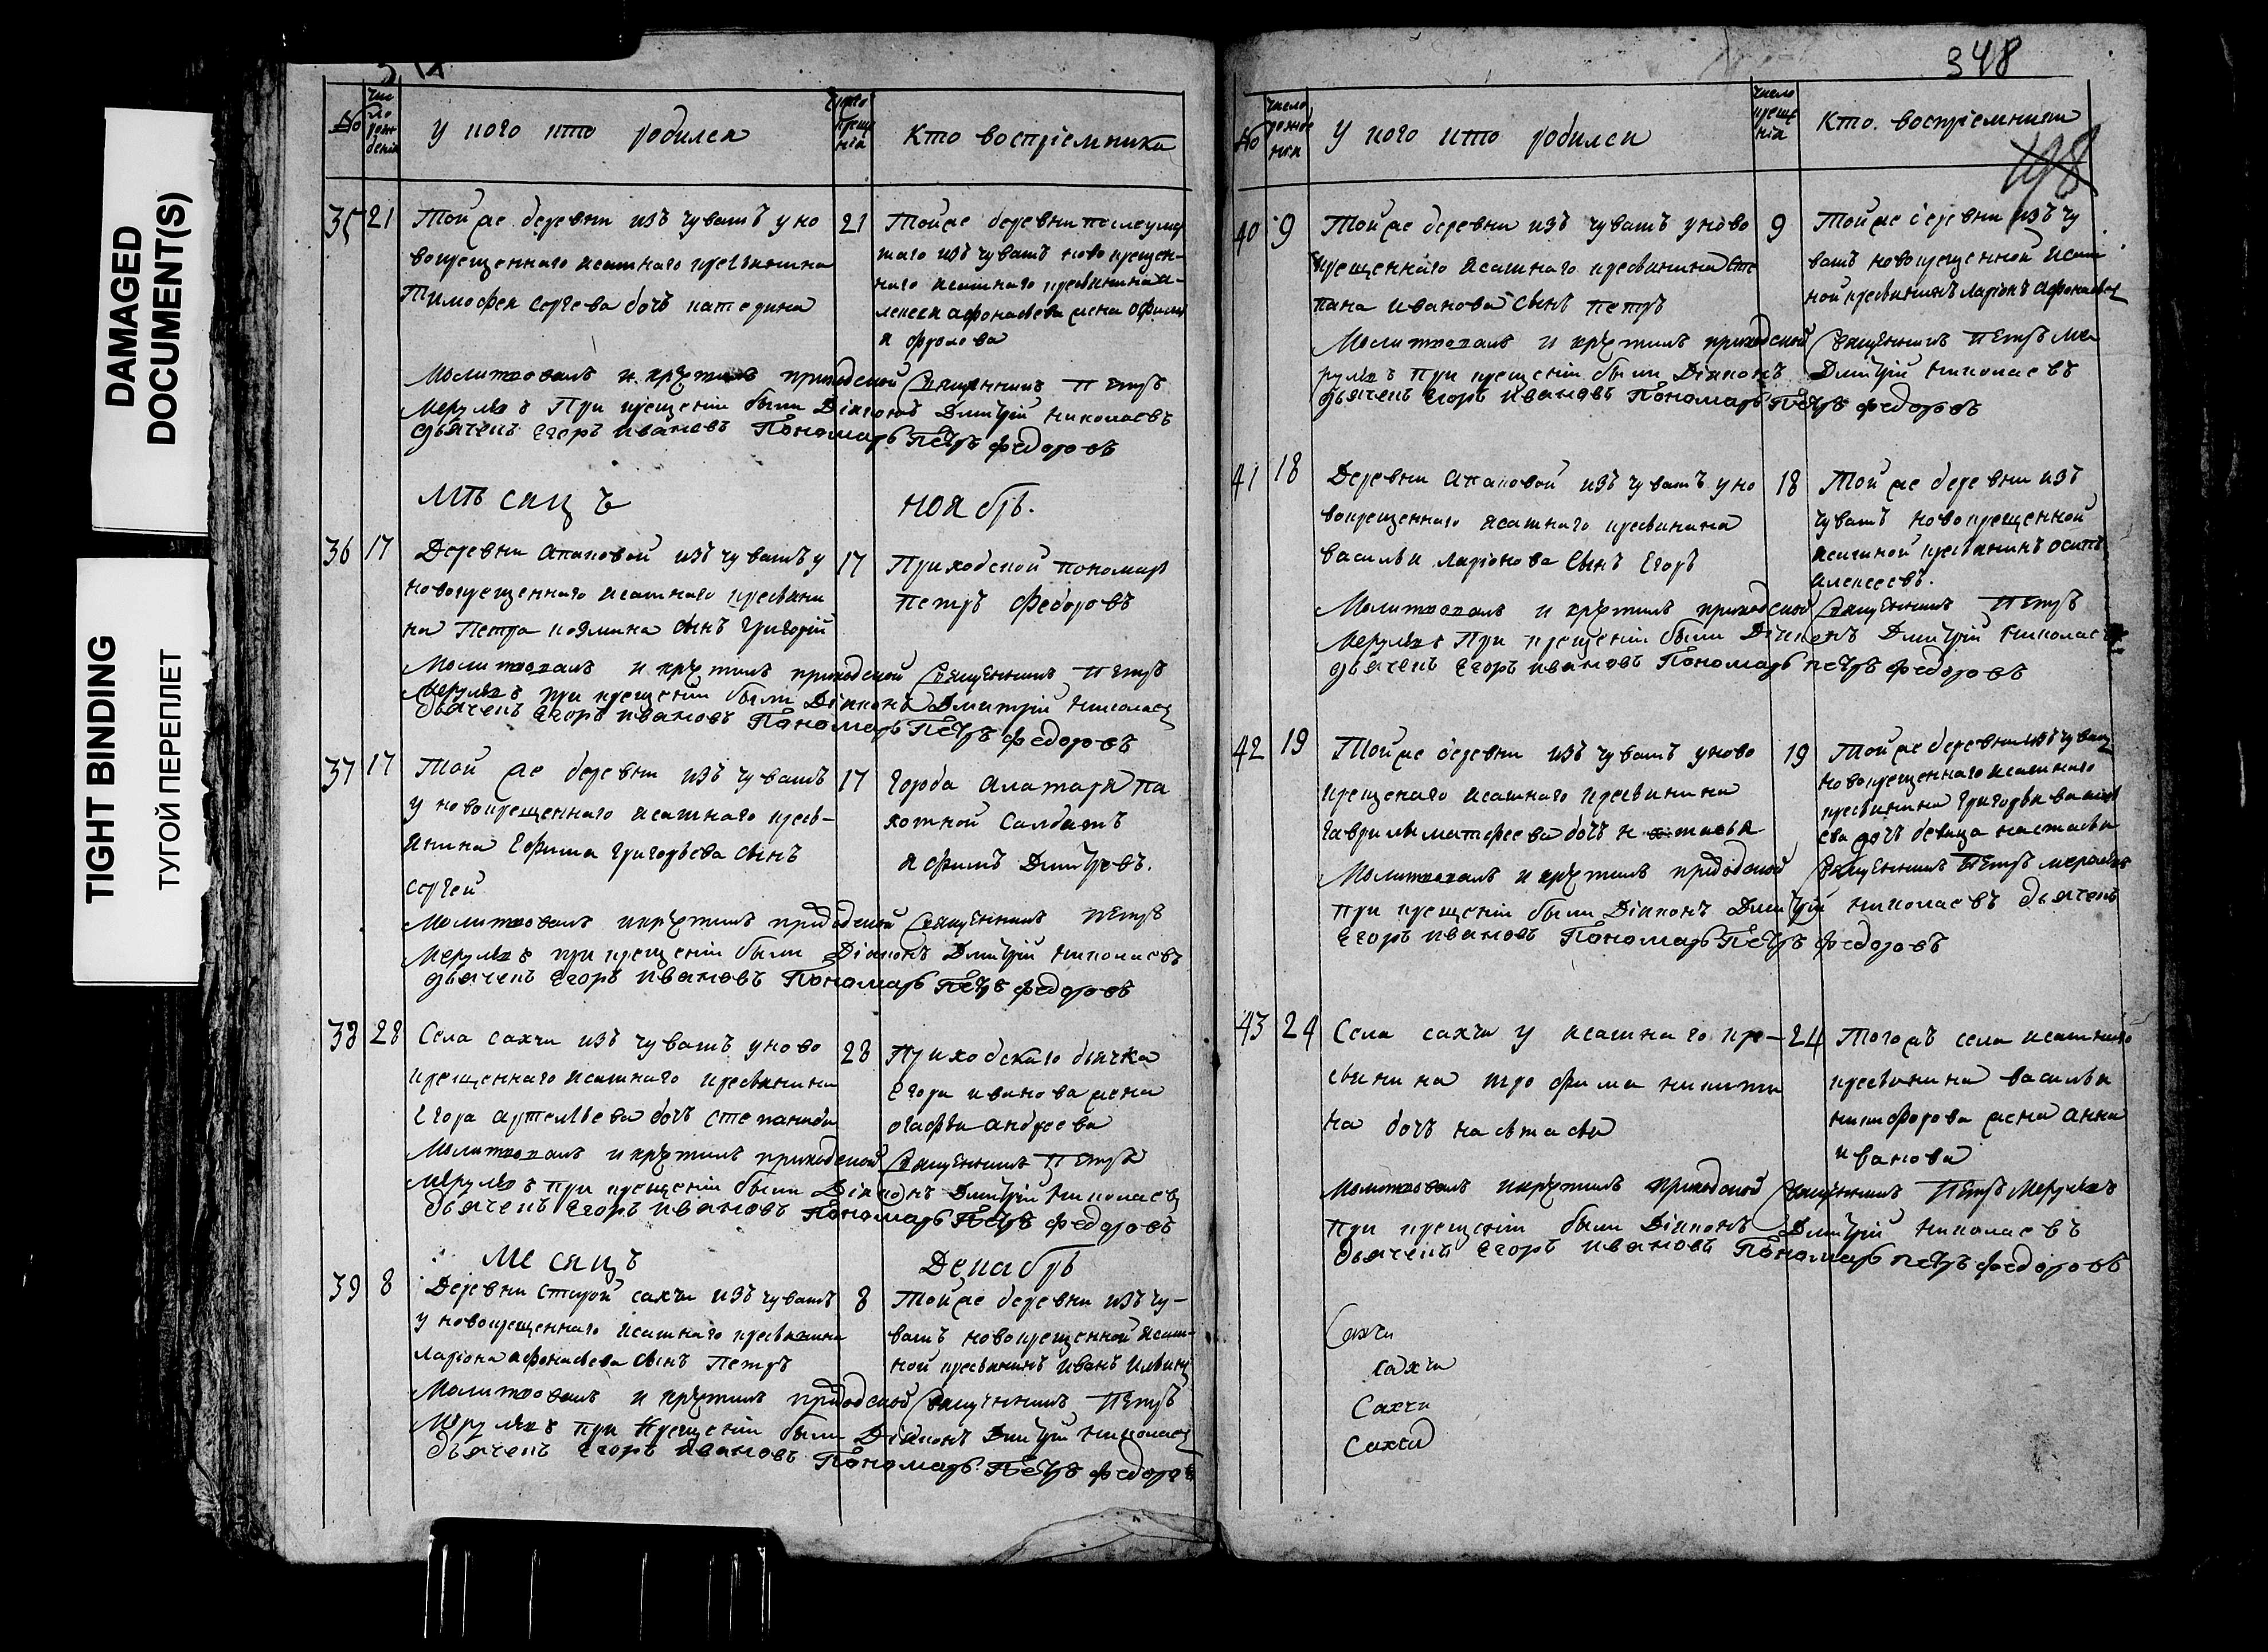 DAMAGED
DOCUMENT(S)
TIGHT BINDING
ТУГОЙ ПЕРЕПЛЕТ
№
число рождения
у кого кто родился
число крещенія
кто воспріемника
35 21
Той же деревни изъ чувашъ у но
вокрещеннаго ясашнаго кресьянина
Тимофея Сергева дочь катерина
21
Тойже деревни после умер
шаго изъ чувашъ новокрещен-
наго ясашнаго кресьянина а-
лексея афонасьева жена
фролова
Молитвовалъ и крѣстилъ приходской Священникъ Петръ
При крещеніи были Діяконъ Дмитрій николаевъ
дьячекъ Егоръ ивановъ Пономарь Петръ федоровъ
мѣсяцъ ноябрь.
36 17
Деревни апаковой изъ чувашъ у
новокрещеннаго ясашнаго кресьяни
на Петра козмина сынъ григорій
17
Приходской пономарь
петръ федоровъ
Молитвовалъ и крѣстилъ приходской Священникъ Петръ
при крещеніи были Діяконъ Дмитрій николаевъ
дьячекъ Егоръ ивановъ Пономарь Петръ федоровъ
37 17
Той же деревни изъ чувашъ
у новокрещеннаго ясашнаго кресь-
янина Ефима григорьева сынъ
сергей
17
города алатаря па
хотной Салдатъ
яфимъ Дмитревъ.
Молитвовалъ и крѣстилъ приходской Священникъ Петръ
при крещеніи были Діяконъ Дмитрій николаевъ
дьячекъ Егоръ ивановъ Пономарь Петръ федоровъ
38 28
Села сахчи изъ чувашъ у ново
крещеннаго ясашнаго кресьянина
Егора артемьева дочь степанида
28
Приходскаго дьячка
Егора иванова жена
огафья андреева
Молитвовалъ и крѣстилъ приходской Священникъ Петръ
при крещеніи были Діяконъ Дмитрій николаевъ
дьячекъ Егоръ ивановъ Пономарь Петръ федоровъ
месяцъ Декабрь
39 8
Деревни старой сахчи изъ чувашъ
у новокрещеннаго ясашнаго кресьянина
ларіона афонасьева сынъ Петръ
8
Тойже деревни изъ чу-
вашъ новокрещенной ясаш-
ной кресьянинъ иванъ
Молитвовалъ и крѣстилъ приходской Священникъ Петръ
при крещеніи были Діяконъ Дмитрій николаевъ
дьячекъ Егоръ ивановъ Пономарь Петръ федоровъ
348
198
№
число рожденія
у кого кто родился
число крещенія
Кто воспріемники
40 9
Тойже деревни изъ чувашъ у ново
крещеннаго ясашнаго кресьянина сте
пана иванова сынъ петръ
9
Тойже деревни изъ чу
вашъ новокрещенной ясаш
ной кресьянинъ ларіонъ афонасьев
Молитвовалъ и крѣстилъ приходской Священникъ Петръ
при крещеніи были Діяконъ Дмитрій николаевъ
дьячекъ Егоръ ивановъ Пономарь Петръ федоровъ
41 18
Деревни апаковой изъ чувашъ у но
вокрещеннаго ясашнаго кресьянина
василья ларіонова сынъ Егоръ
18
Той же деревни изъ
чувашъ новокрещенной
ясашной кресьянинъ осипъ
алексеевъ.
Молитвовалъ и крѣстилъ приходской Священникъ Петръ
При крещеніи были Діяконъ Дмитрій николаевъ
дьячекъ Егоръ ивановъ Пономарь петръ федоровъ
42 19
Тойже деревни изъ чувашъ у ново
крещенаго ясашнаго кресьянина
гаврилы матфеева дочь
19
Той же деревни изъ чуваш
новокрещеннаго ясашнаго
кресьянина григорья
дочь девица настасья
Молитвовалъ и крѣстилъ приходской Священникъ Петръ
при крещеніи были Діяконъ Дмитрій николаевъ дьячекъ
Егоръ ивановъ Пономарь Петръ федоровъ
43 24
Села сахчи у ясашнаго кре-
сьянина трофима никити
на дочь настасья
24
Тогожъ села ясашнаго
кресьянина василья
никифорова жена анна
иванова
молитвовалъ и крѣстилъ приходской Священникъ Петръ
при крещеніи были Діяконъ Дмитрій николаевъ
дьячекъ Егоръ ивановъ Пономарь петръ федоровъ
Сахчи
сахчи
Сахчи
Сахчи